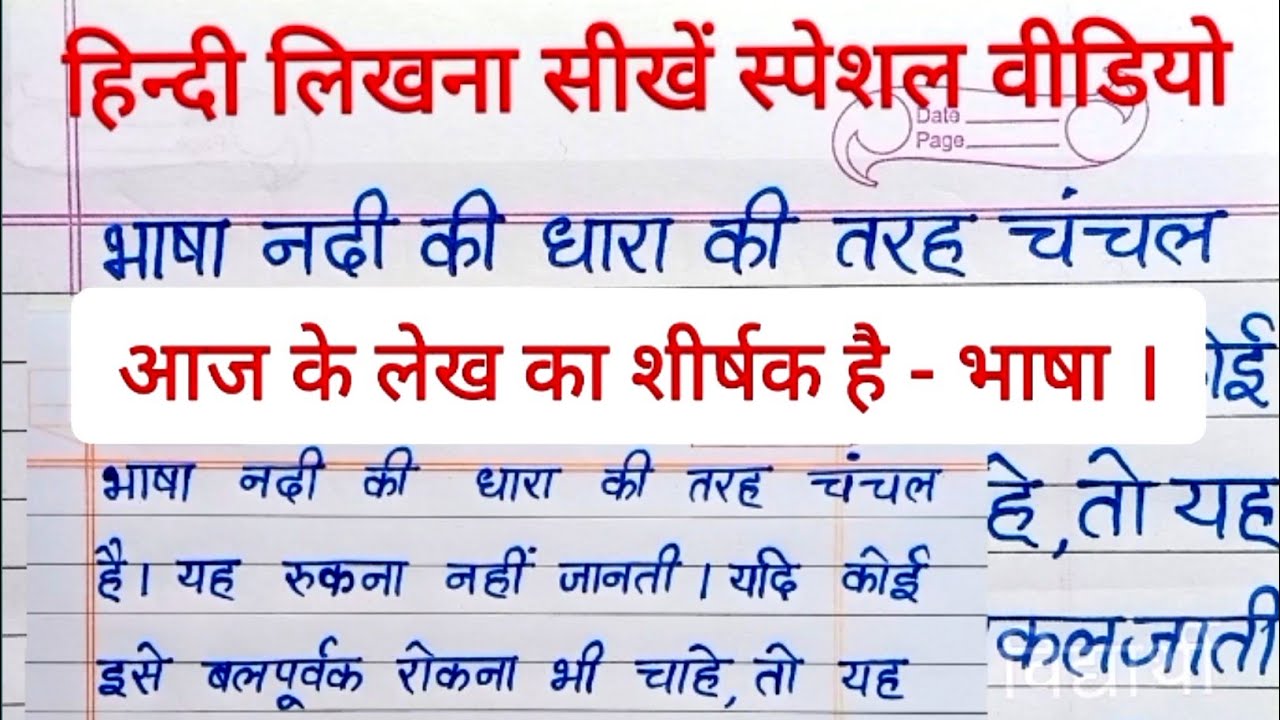 हिन्दी लिखना सीखें स्पेशल वीडियो
Date
Page
भाषा नदी की धारा की तरह चंचल
आज के लेख का शीर्षक है - भाषा ।
भाषा नदी की धारा की तरह चंचल
है। यह रुकना नहीं जानती। यदि कोई
इसे बलपूर्वक रोकना भी चाहे, तो यह
हे, तो यह
कलजाती
विद्यार्थी